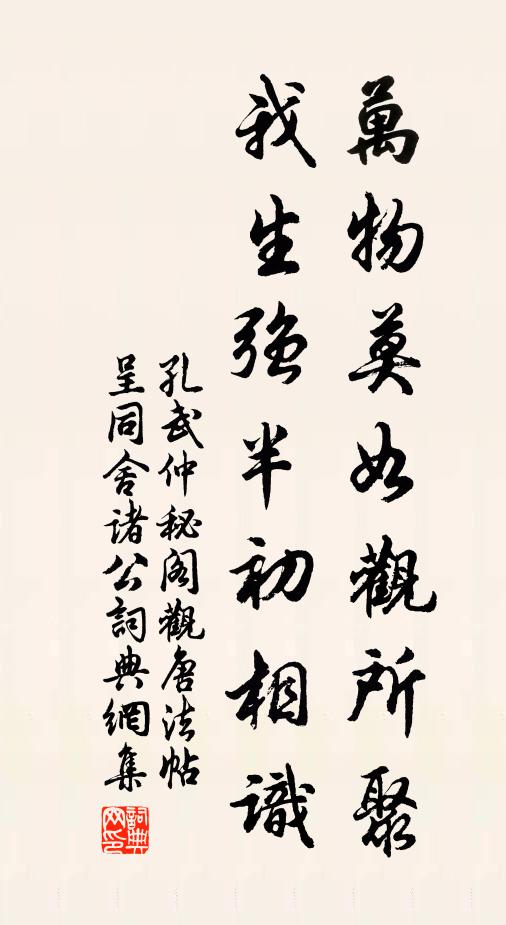 萬物莫如觀所聚
我生強半初相識
孔武仲秘閣觀唐法帖
呈同舍諸公詞典網集
詞典網印